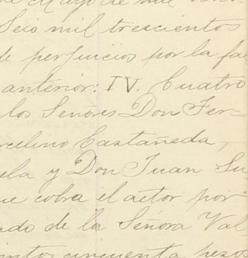 de Mayo de mil
Seis mil trescientos
de perjuicios por la fal
anterior: IV. Cuatro
los Señores Don Fer-
rcelino Castañeda,
ela y Don Juan Su
ue cobra el actor por
ado de la Señora Val
ento cincuenta pesos